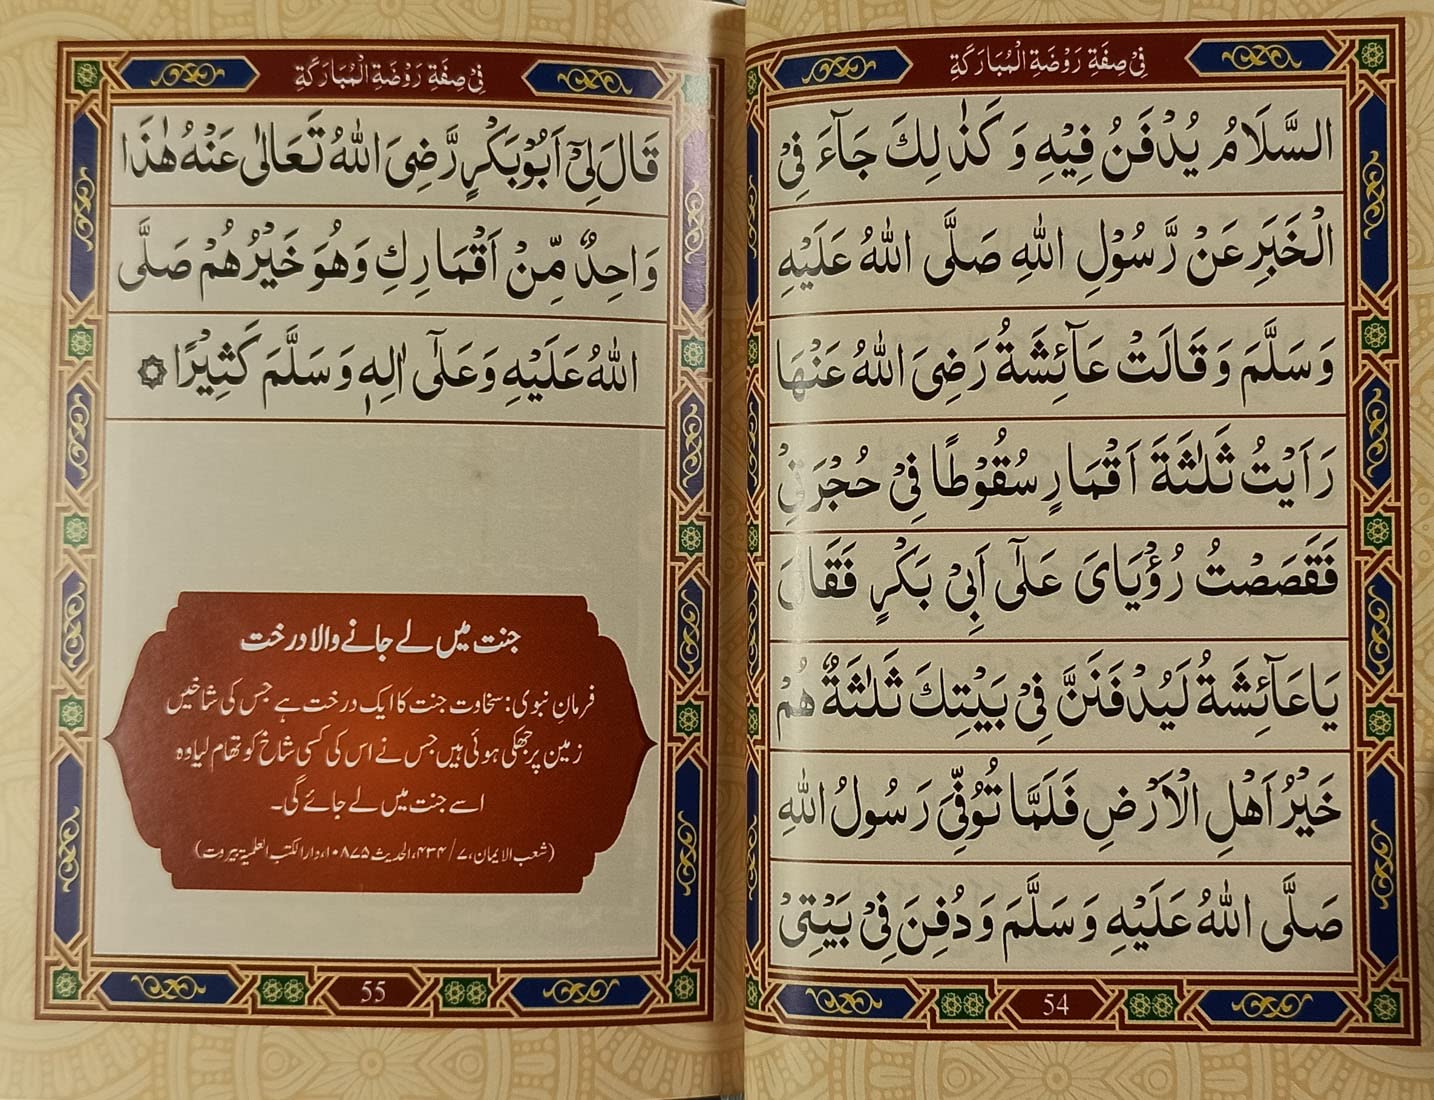 فِیْ صِفَةِ رَوْضَةِ الْمُبَارَکَةِ
السَّلَامُ یُدْفَنُ فِیْهِ وَ کَذٰلِكَ جَآءَ فِی
الْخَبَرِ عَنْ رَّسُوْلِ اللهِ صَلَّی اللهُ عَلَیْهِ
وَ سَلَّمَ وَ قَالَتْ عَآئِشَةُ رَضِیَ اللهُ عَنْهَا
رَاَیْتُ ثَلٰثَةَ اَقْمَارٍ سُقُوْطًا فِیْ حُجْرَتِیْ
فَقَصَصْتُ رُؤْیَایَ عَلٰٓی اَبِیْ بَکْرٍ فَقَالَ
یَا عَآئِشَةُ لَیُدْفَنَنَّ فِیْ بَیْتِكَ ثَلٰثَةٌ هُمْ
خَیْرُ اَهْلِ الْاَرْضِ فَلَمَّا تُوُفِّیَ رَسُوْلُ اللهِ
صَلَّی اللهُ عَلَیْهِ وَ سَلَّمَ وَ دُفِنَ فِیْ بَیْتِیْ
54
فِیْ صِفَةِ رَوْضَةِ الْمُبَارَکَةِ
قَالَ لِیْٓ اَبُوْ بَکْرٍ رَّضِیَ اللهُ تَعَالٰی عَنْهُ هٰذَا
وَاحِدٌ مِّنْ اَقْمَارِكِ وَهُوَ خَیْرُهُمْ صَلَّی
اللهُ عَلَیْهِ وَ عَلٰٓی اٰلِهٖ وَ سَلَّمَ کَثِیْرًا ۞
جنت میں لے جانے والا درخت
فرمانِ نبوی: سخاوت جنت کا ایک درخت ہے جس کی شاخیں
زمین پر جھکی ہوئی ہیں جس نے اس کی کسی شاخ کو تھام لیا وہ
اسے جنت میں لے جائے گی۔
(شعب الایمان، ۷/ ۴۳۴، الحدیث ۱۰۸۷۵، دار الکتب العلمیة بیروت)
55